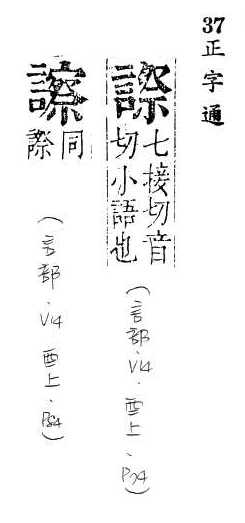 37正字通
七接切音
切小語也
(言部.V14.酉上.P74)
同
(言部.V14 酉上.P84)